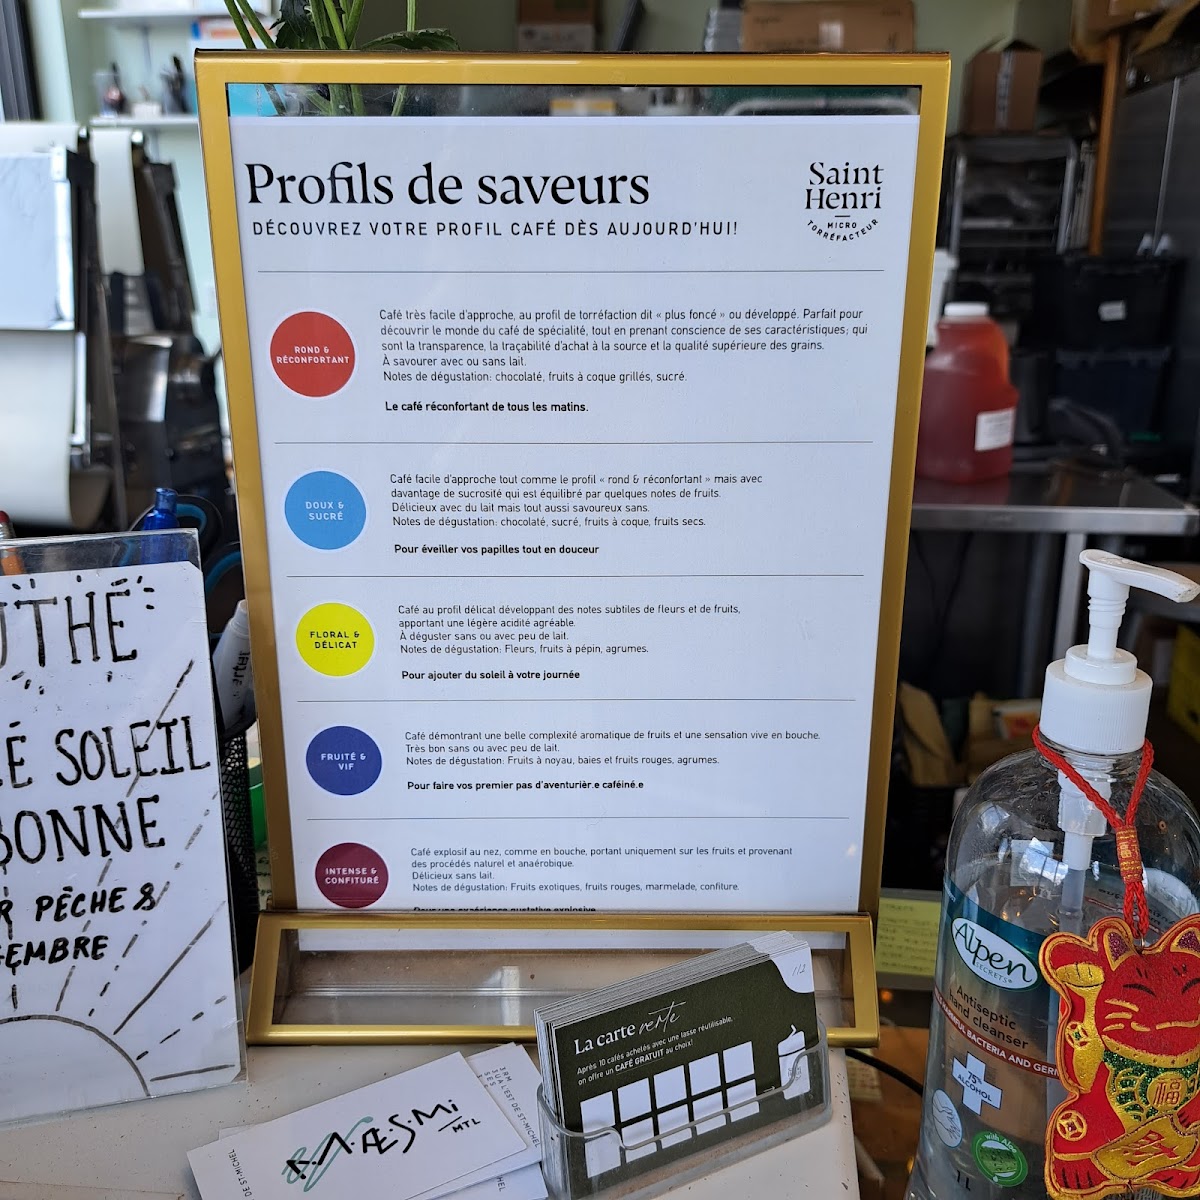 Profils de saveurs
DÉCOUVREZ VOTRE PROFIL CAFÉ DÈS AUJOURD'HUI!
Saint
Henri
MICRO
TORRÉFACTEUR
ROND &
RÉCONFORTANT
Café très facile d'approche, au profil de torréfaction dit « plus foncé » ou développé. Parfait pour
découvrir le monde du café de spécialité, tout en prenant conscience de ses caractéristiques; qui
sont la transparence, la traçabilité d'achat à la source et la qualité supérieure des grains.
À savourer avec ou sans lait.
Notes de dégustation: chocolaté, fruits à coque grillés, sucré.
Le café réconfortant de tous les matins.
DOUX &
SUCRÉ
Café facile d'approche tout comme le profil « rond & réconfortant » mais avec
davantage de sucrosité qui est équilibré par quelques notes de fruits.
Délicieux avec du lait mais tout aussi savoureux sans.
Notes de dégustation: chocolaté, sucré, fruits à coque, fruits secs.
Pour éveiller vos papilles tout en douceur
FLORAL &
DÉLICAT
Café au profil délicat développant des notes subtiles de fleurs et de fruits,
apportant une légère acidité agréable.
À déguster sans ou avec peu de lait.
Notes de dégustation: Fleurs, fruits à pépin, agrumes.
Pour ajouter du soleil à votre journée
FRUITÉ &
VIF
Café démontrant une belle complexité aromatique de fruits et une sensation vive en bouche.
Très bon sans ou avec peu de lait.
Notes de dégustation: Fruits à noyau, baies et fruits rouges, agrumes.
Pour faire vos premier pas d'aventurièr.e caféiné.e
INTENSE &
CONFITURÉ
Café explosif au nez, comme en bouche, portant uniquement sur les fruits et provenant
des procédés naturel et anaérobique.
Délicieux sans lait.
Notes de dégustation: Fruits exotiques, fruits rouges, marmelade, confiture.
Pour une expérience gustative explosive
THÉ
É SOLEIL
BONNE
R PÈCHE &
GEMBRE
La carte verte
Après 10 cafés achetés avec une tasse réutilisable,
on offre un CAFÉ GRATUIT au choix!
MTL
DE ST-MICHEL
L'EST DE ST-MICHEL
Alpen
SECRETS
Antiseptic
hand cleanser
BACTERIA AND GER
75%
ALCOHOL
with Aloe
1L
福